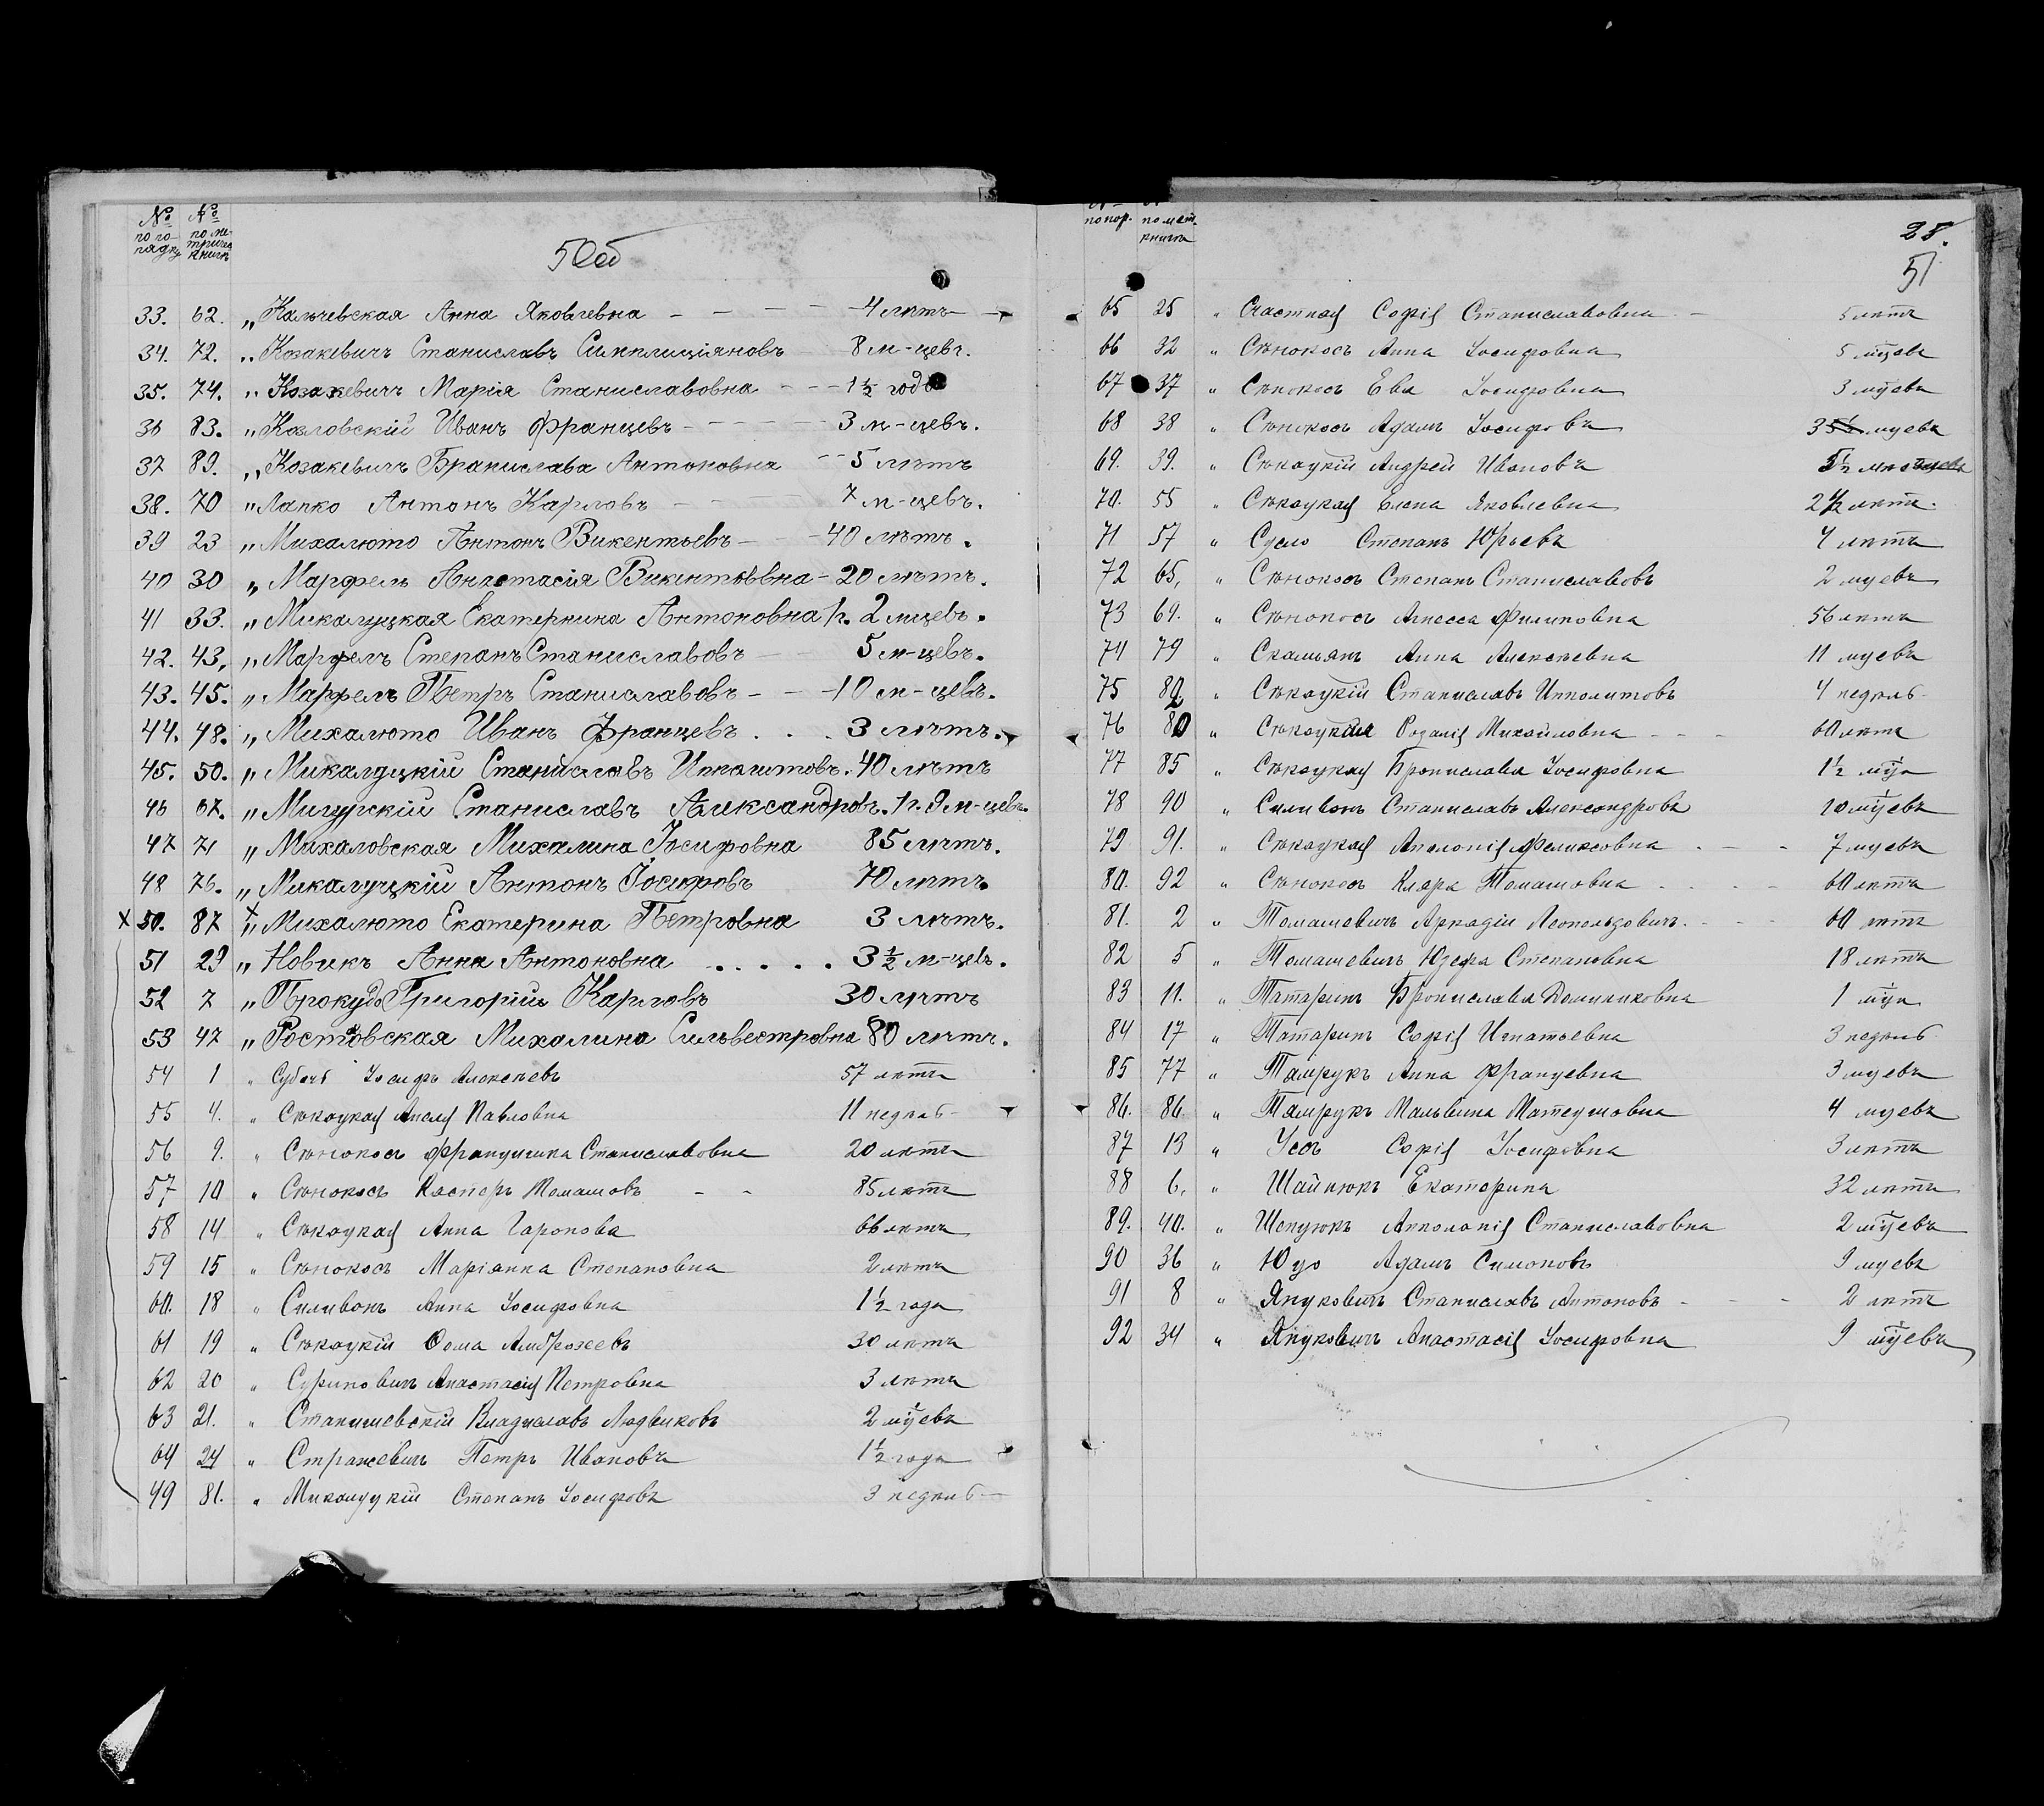 № по порядку № по метрическ. книгѣ
50об
33. 62. „ Кальчевская Анна Яковлевна – – – 4 лѣтъ
34. 72. „ Козакевичъ Станиславъ Симплиціяновъ 8 м-цевъ.
35. 74. „ Козакевичъ Марія Станиславовна – – 1½ года
36 83. „ Козловскій Иванъ Францевъ – – – – 3 м-цевъ.
37 89. „ Козакевичъ Брaнислава Антоновна – – 5 лѣтъ
38. 70 „ Лапко Антонъ Карловъ – 7 м-цевъ.
39 23 „ Михалюто Антонъ Викентьевъ – – 40 лѣтъ.
40 30 „ Марфель Анастасія Викентьевна – 20 лѣтъ.
41 33. „ Микалуцкая Екатерина Антоновна 1г. 2 мцевъ.
42. 43. „ Марфелъ Степанъ Станиславовъ 5 м-цевъ.
43. 45. „ Марфелъ Петръ Станиславовъ – – 10 м-цевъ.
44. 48. „ Михалюто Иванъ Францевъ . . . 3 лѣтъ.
45. 50. „ Микалуцкій Станиславъ Ипполитовъ. 40 лѣтъ
46 67. „ Станиславъ Александровъ. 1г. 9 м-цевъ.
47 71 „ Михаловская Михалина Іосифовна 85 лѣтъ.
48 76. „ Микалуцкій Антонъ Іосифовъ 70 лѣтъ.
х 50. 87 х „ Михалюто Екатерина Петровна 3 лѣтъ.
51 29 „ Новикъ Анна Антоновна . . . . . 3½ м-цевъ.
52 7 „ Прокудо Григорій Карловъ 30 лѣтъ
53 47 „ Ростовская Михалина Сильвестровна 80 лѣтъ.
54 1 „ Іосифъ Алексѣевъ 57 лѣтъ
55 4. „ Сѣкацкая Анеля Павловна 11 недѣль
56 9. „ Сѣнокосъ Францишка Станиславовна 20 лѣтъ
57 10 „ Сѣнокосъ Касперъ Томашовъ – – 85 лѣтъ
58 14 „ Сѣкацкая Анна 66 лѣтъ
59 15 „ Сѣнокосъ Маріанна Степановна 2 лѣтъ
60. 18 „ Силивонъ Анна Іосифовна 1½ года
61 19 „ Сѣкацкій Ѳома Амброжеевъ 30 лѣтъ
62 20 „ Суриновичъ Анастасія Петровна 3 лѣтъ
63 21. „ Станишевскій Владиславъ Людвиковъ 2 мцевъ
64 24 „ Стражевичъ Петръ Ивановъ 1½ года
49 81. „ Микалуцкій Степанъ Іосифовъ 3 недѣль
по пор. по мет. книгѣ
28.
51
65 25 „ Счастная Софія Станиславовна – 5 лѣтъ
66 32 „ Сѣнокосъ Анна Іосифовна 5 мцевъ
67 37 „ Сѣнокосъ Ева Іосифовна 3 мцевъ
68 38 „ Сѣнокосъ Адамъ Іосифовъ 3 мцевъ
69. 39. „ Сѣкацкій Андрей Ивановъ 5½
70. 55 „ Сѣкацкая Елена Яковлевна 2½ лѣтъ.
71 57 „ Сусло Степанъ Юрьевъ 4 лѣтъ
72 65. „ Сѣнокосъ Степанъ Станиславовъ 2 мцевъ
73 69. „ Сѣнокосъ Агнесса Филиповна 56 лѣтъ
74 79 „ Анна Алексѣевна 11 мцевъ
75 82 „ Сѣкацкій Станиславъ Ипполитовъ 4 недѣль
76 80 „ Сѣкацкая Розалія Михайловна – – – 60 лѣтъ
77 85 „ Сѣкацкая Брониславa Іосифовна 1½ мца
78 90 „ Силивонъ Станиславъ Александровъ 10 мцевъ
79. 91. „ Сѣкацкая Аполонія Феликсовна . – . 7 мцевъ
80. 92 „ Сѣнокосъ Клара Томашовна . . . 60 лѣтъ
81. 2 „ Томашевичъ Аркадій Леопольдовичъ. – – 60 лѣтъ
82 5 „ Томашевичъ Юзефа Степановна 18 лѣтъ
83 11. „ Татаринъ Брониславa Доминиковна 1 мца
84 17 „ Татаринъ Софія Игнатьевна 3 недѣль
85 77 „ Тамрукъ Анна Францевна 3 мцевъ
86. 86 „ Тамрукъ Мальвина Матеушовна 4 мцевъ
87 13 „ Усъ Софія Іосифовна 3 лѣтъ
88 6. „ Шайнюкъ Екатерина 32 лѣтъ
89. 40. „ Шепуюкъ Апполонія Станиславовна 2 мцевъ
90 36 „ Юцо Адамъ Симоновъ 9 мцевъ
91 8 „ Януковичъ Станиславъ Антоновъ – – 2 лѣтъ
92 34 „ Януковичъ Анастасія Іосифовна 9 мцевъ